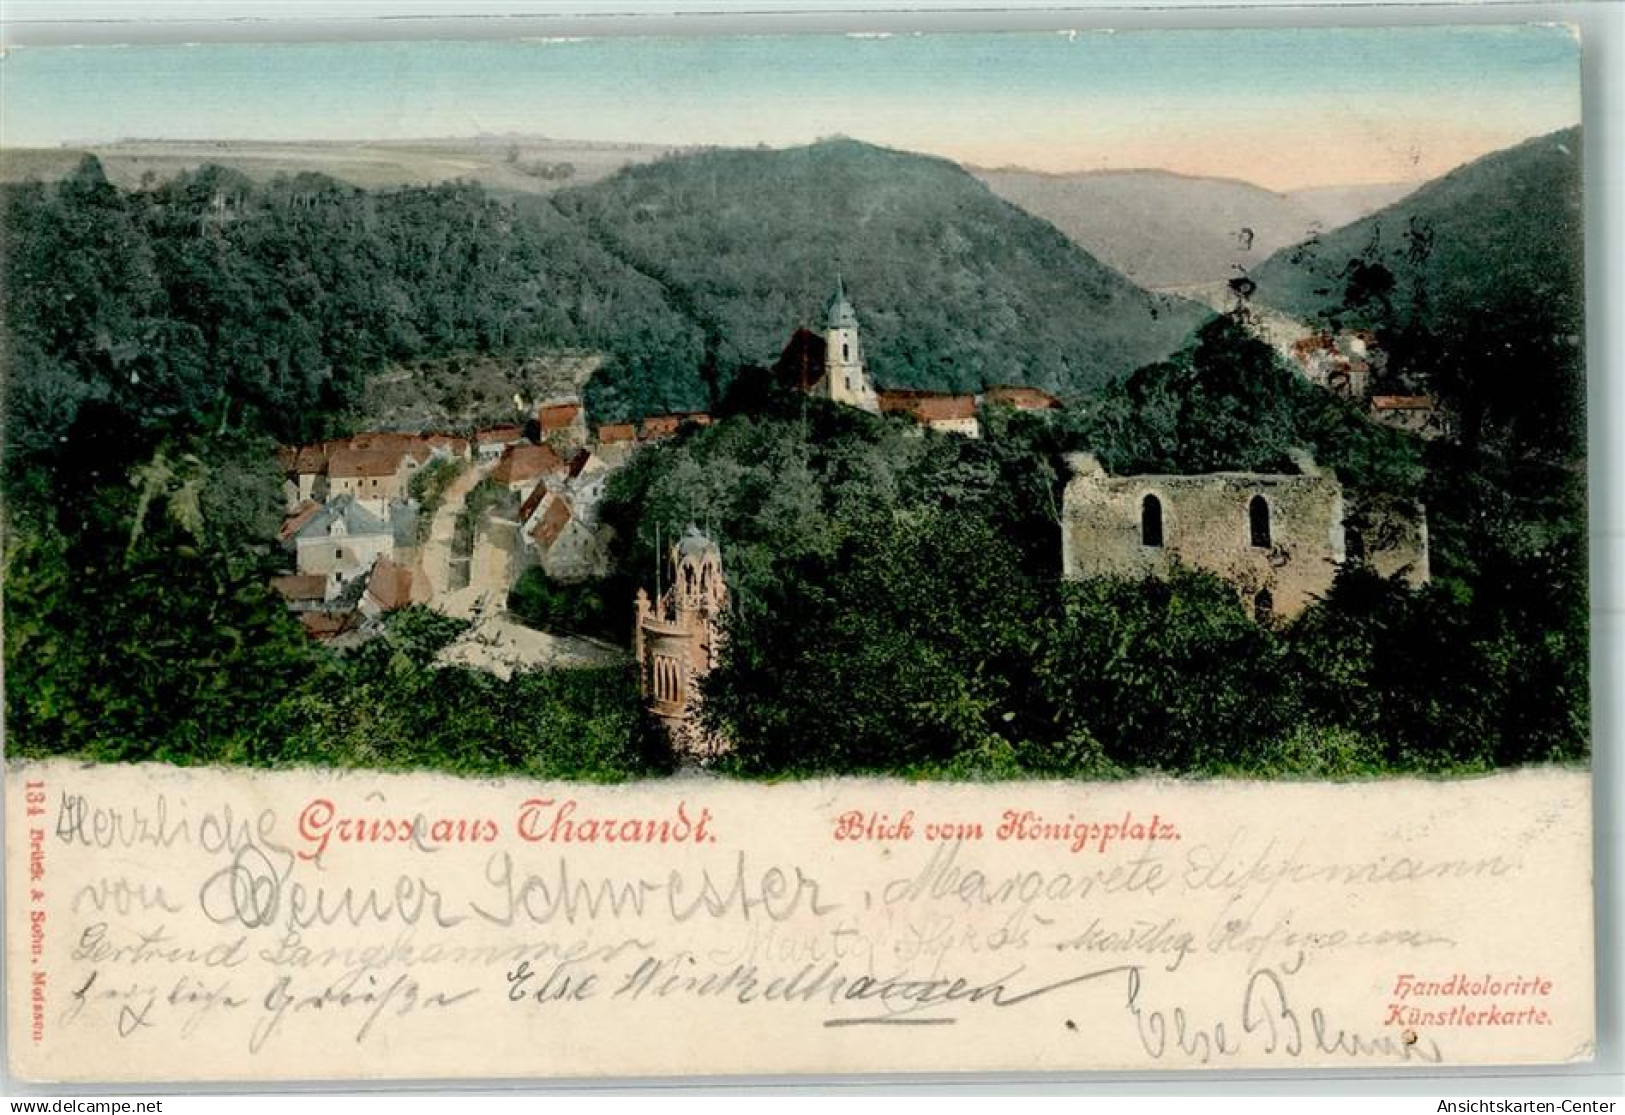 Gruss aus Tharandt. Blick vom Königsplatz.
134 Brück & Sohn, Meissen.
Herzliche
von Deiner Schwester, Margarete Lippmann
Gertrud Langhammer, Martha Hofmann
herzliche Grüße Else Winkelhausen
Else
Handkolorirte
Künstlerkarte.
delcampe.net
Ansichtskarten-Center